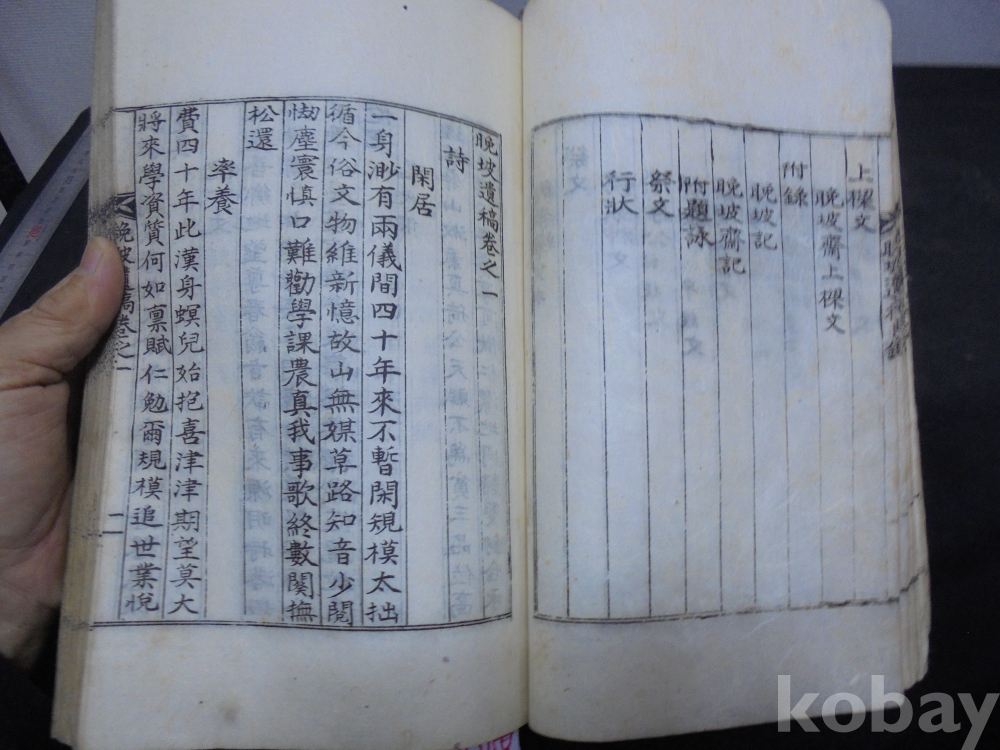 上樑文
晩坡齋上樑文
附錄
晩坡記
晩坡齋記
附題詠
祭文
行狀
晩坡遺稿卷之一
詩
閑居
一身渺有兩儀間四十年來不暫閑規模太拙
循今俗文物維新憶故山無媒草路知音少閱
塵寰愼口難勸學課農真我事歌終數闋撫
松還
率養
費四十年此漢身螟兒始抱喜津津期望莫大
將來學資質何如禀賦仁勉爾規模追世業悅
晩坡遺稿卷之一
一
kobay